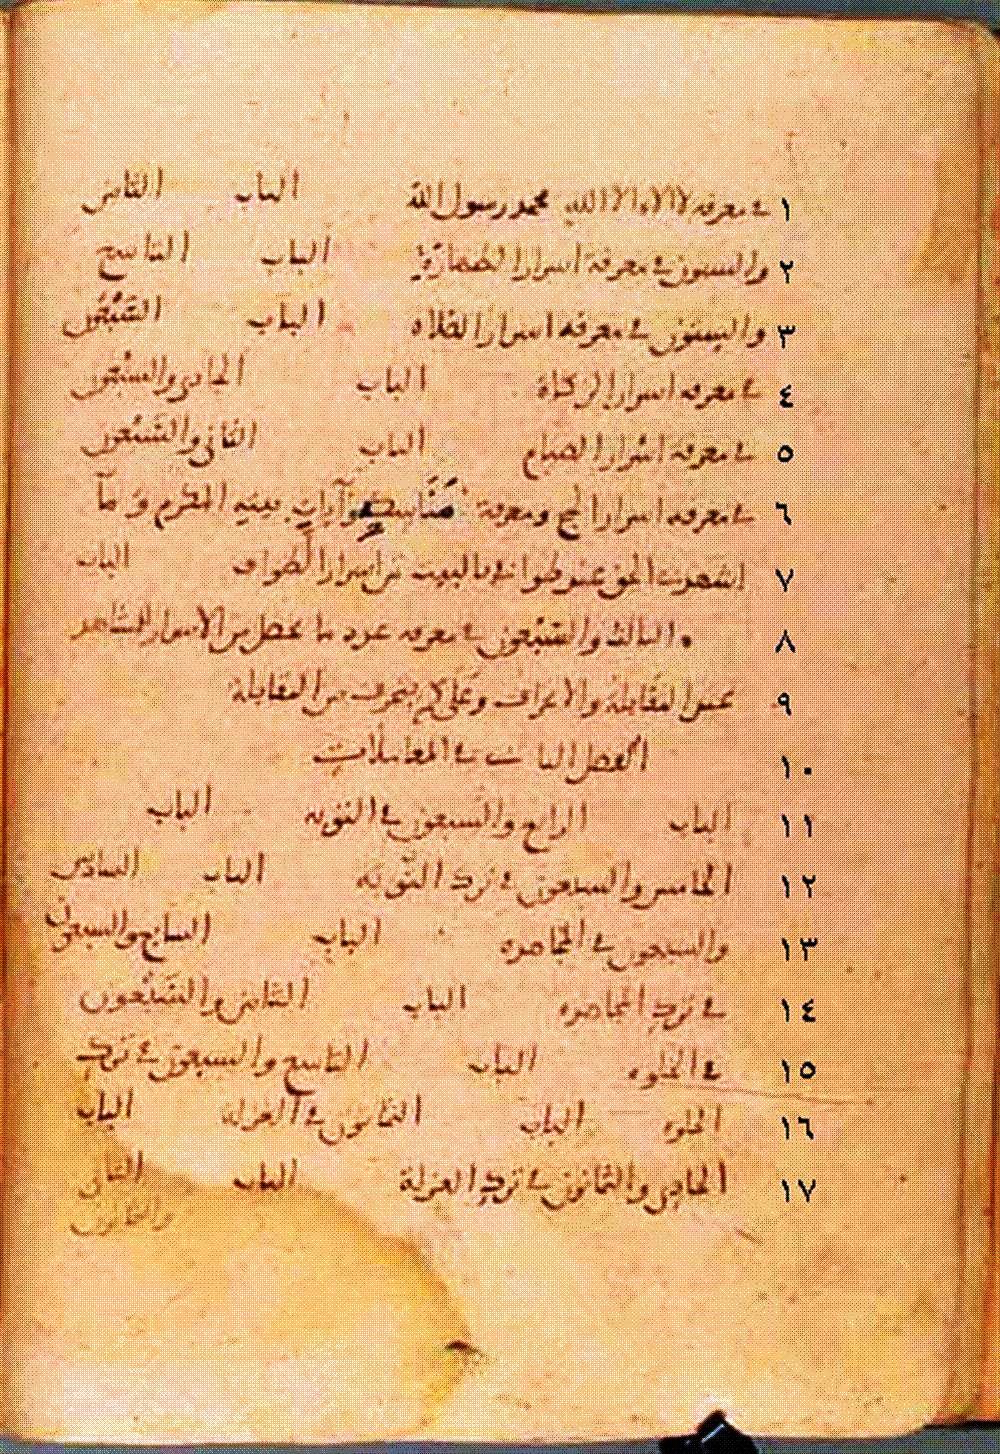 ١ في معرفة لا اله الا الله محمد رسول الله الباب الثامن
٢ والستون في معرفة اسرار الطهارة الباب التاسع
٣ والستون في معرفة اسرار الصلاه الباب السَّبْعُون
٤ في معرفة اسرار الزكاة الباب الحادي والسبعون
٥ في معرفة اسرار الصيام الباب الثاني والسَّبْعون
٦ في معرفة اسرار الحج ومعرفة مَنَاسكه وآيات بيته المكرم وما
٧ اشهدت الحق عند طوافي بالبيت من اسرار الطواف الباب
٨ الثالث والسَّبْعون في معرفة عدد ما يحصل من الاسرار للمشاهد
٩ عند المقابلة والانحراف وعلى كم ينحرف من المقابلة
١٠ الفصل الثاني في المعاملات
١١ الباب الرابع والسبعون في التوبه الباب
١٢ الخامس والسبعون في ترك التوبة الباب السادس
١٣ والسبعون في المجاهده الباب السابع والسبعون
١٤ في ترك المجاهده الباب الثامن والسَّبْعون
١٥ في الخلوه الباب التاسع والسبعون في ترك
١٦ الخلوه الباب الثمانون في العزلة الباب
١٧ الحادي والثمانون في ترك العزلة الباب الثاني
والثمانون